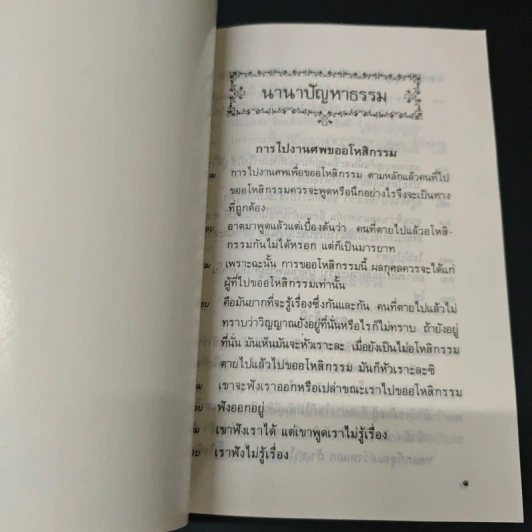 นานาปัญหาธรรม
การไปงานศพขออโหสิกรรม
การไปงานศพเพื่อขออโหสิกรรม ตามหลักแล้วคนที่ไป
ขออโหสิกรรมควรจะพูดหรือนึกอย่างไรจึงจะเป็นทาง
ที่ถูกต้อง
อาตมาพูดแล้วแต่เบื้องต้นว่า คนที่ตายไปแล้วอโหสิ-
กรรมกันไม่ได้หรอก แต่ก็เป็นมารยาท
เพราะฉะนั้น การขออโหสิกรรมนี้ ผลกุศลควรจะได้แก่
ผู้ที่ไปขออโหสิกรรมเท่านั้น
คือมันยากที่จะรู้เรื่องซึ่งกันและกัน คนที่ตายไปแล้วไม่
ทราบว่าวิญญาณยังอยู่ที่นั่นหรือไรก็ไม่ทราบ ถ้ายังอยู่
ที่นั่น มันเห็นมันจะหัวเราะละ เมื่อยังเป็นไม่อโหสิกรรม
ตายไปแล้วไปขออโหสิกรรม มันก็หัวเราะละซิ
เขาจะฟังเราออกหรือเปล่าขณะเราไปขออโหสิกรรม
ฟังออกอยู่
เขาฟังเราได้ แต่เขาพูดเราไม่รู้เรื่อง
เราฟังไม่รู้เรื่อง